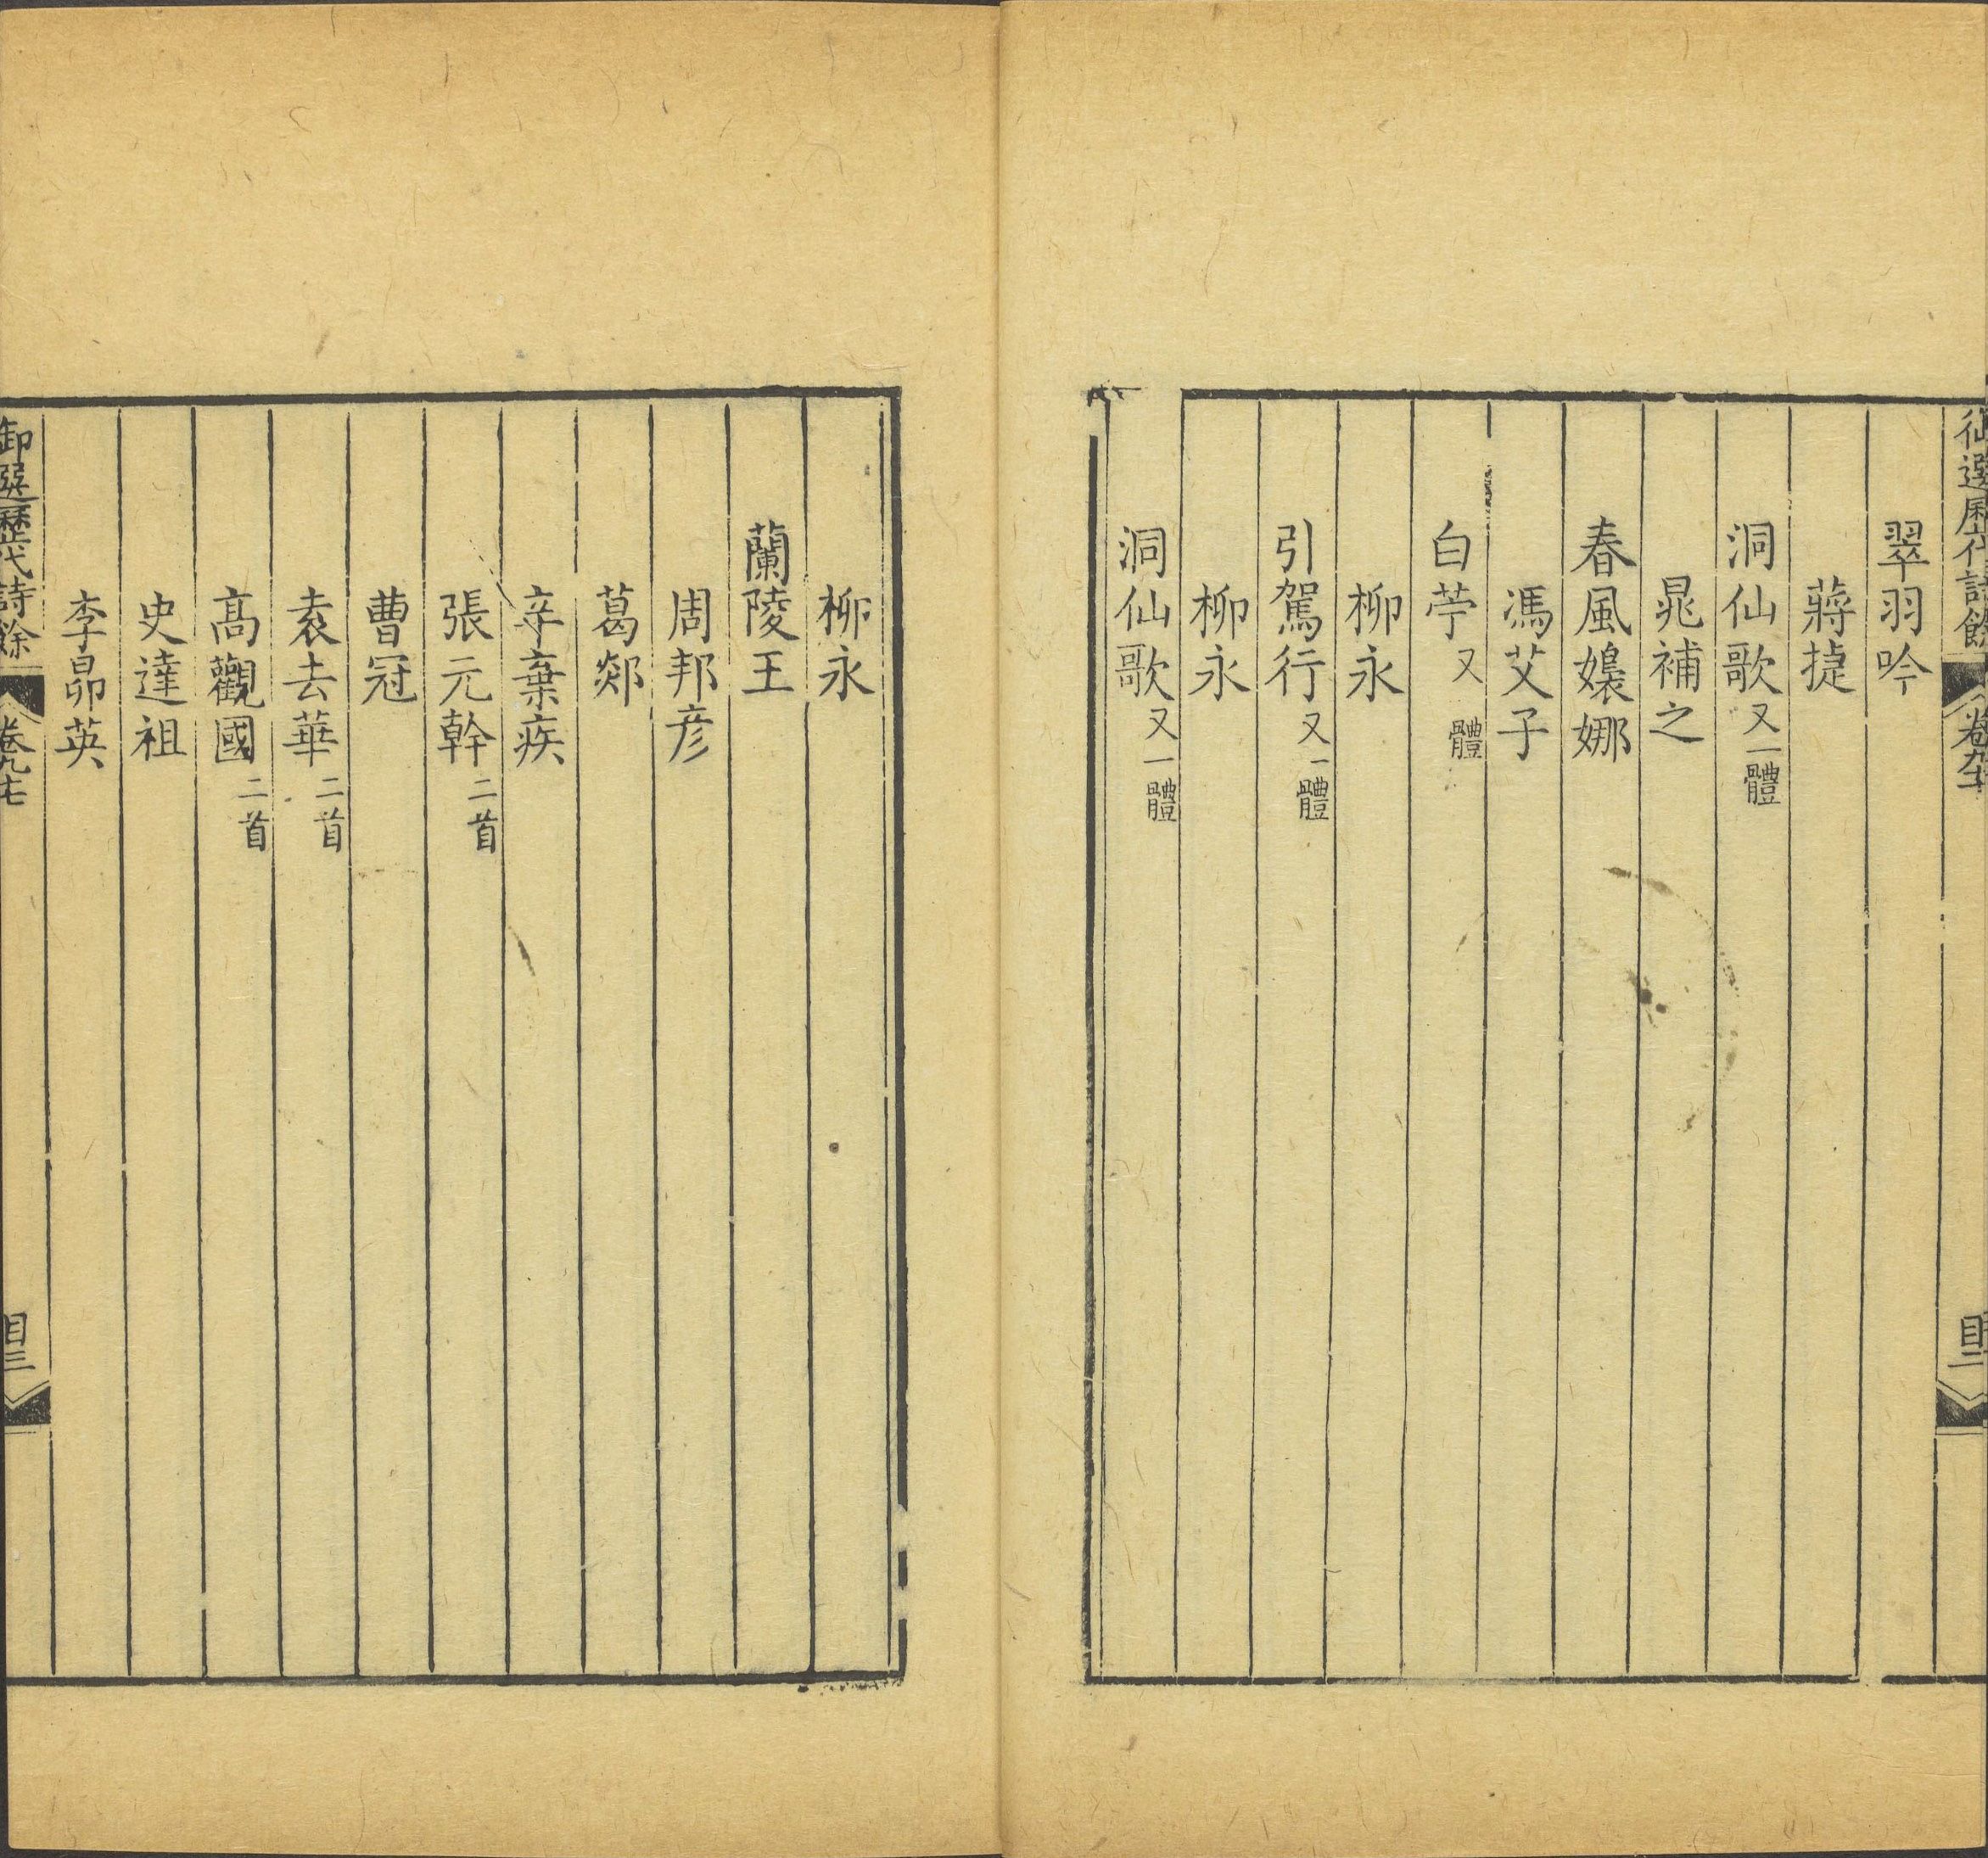 御選歷代詩餘 卷九十七
翠羽吟
蔣捷
洞仙歌又一體
晁補之
春風嬝娜
馮艾子
白苧又 體
柳永
引駕行又一體
柳永
洞仙歌又一體
柳永
蘭陵王
周邦彦
葛郯
辛棄疾
張元幹二首
曹冠
袁去華二首
高觀國二首
史達祖
李昴英
御選歷代詩餘 卷九十七